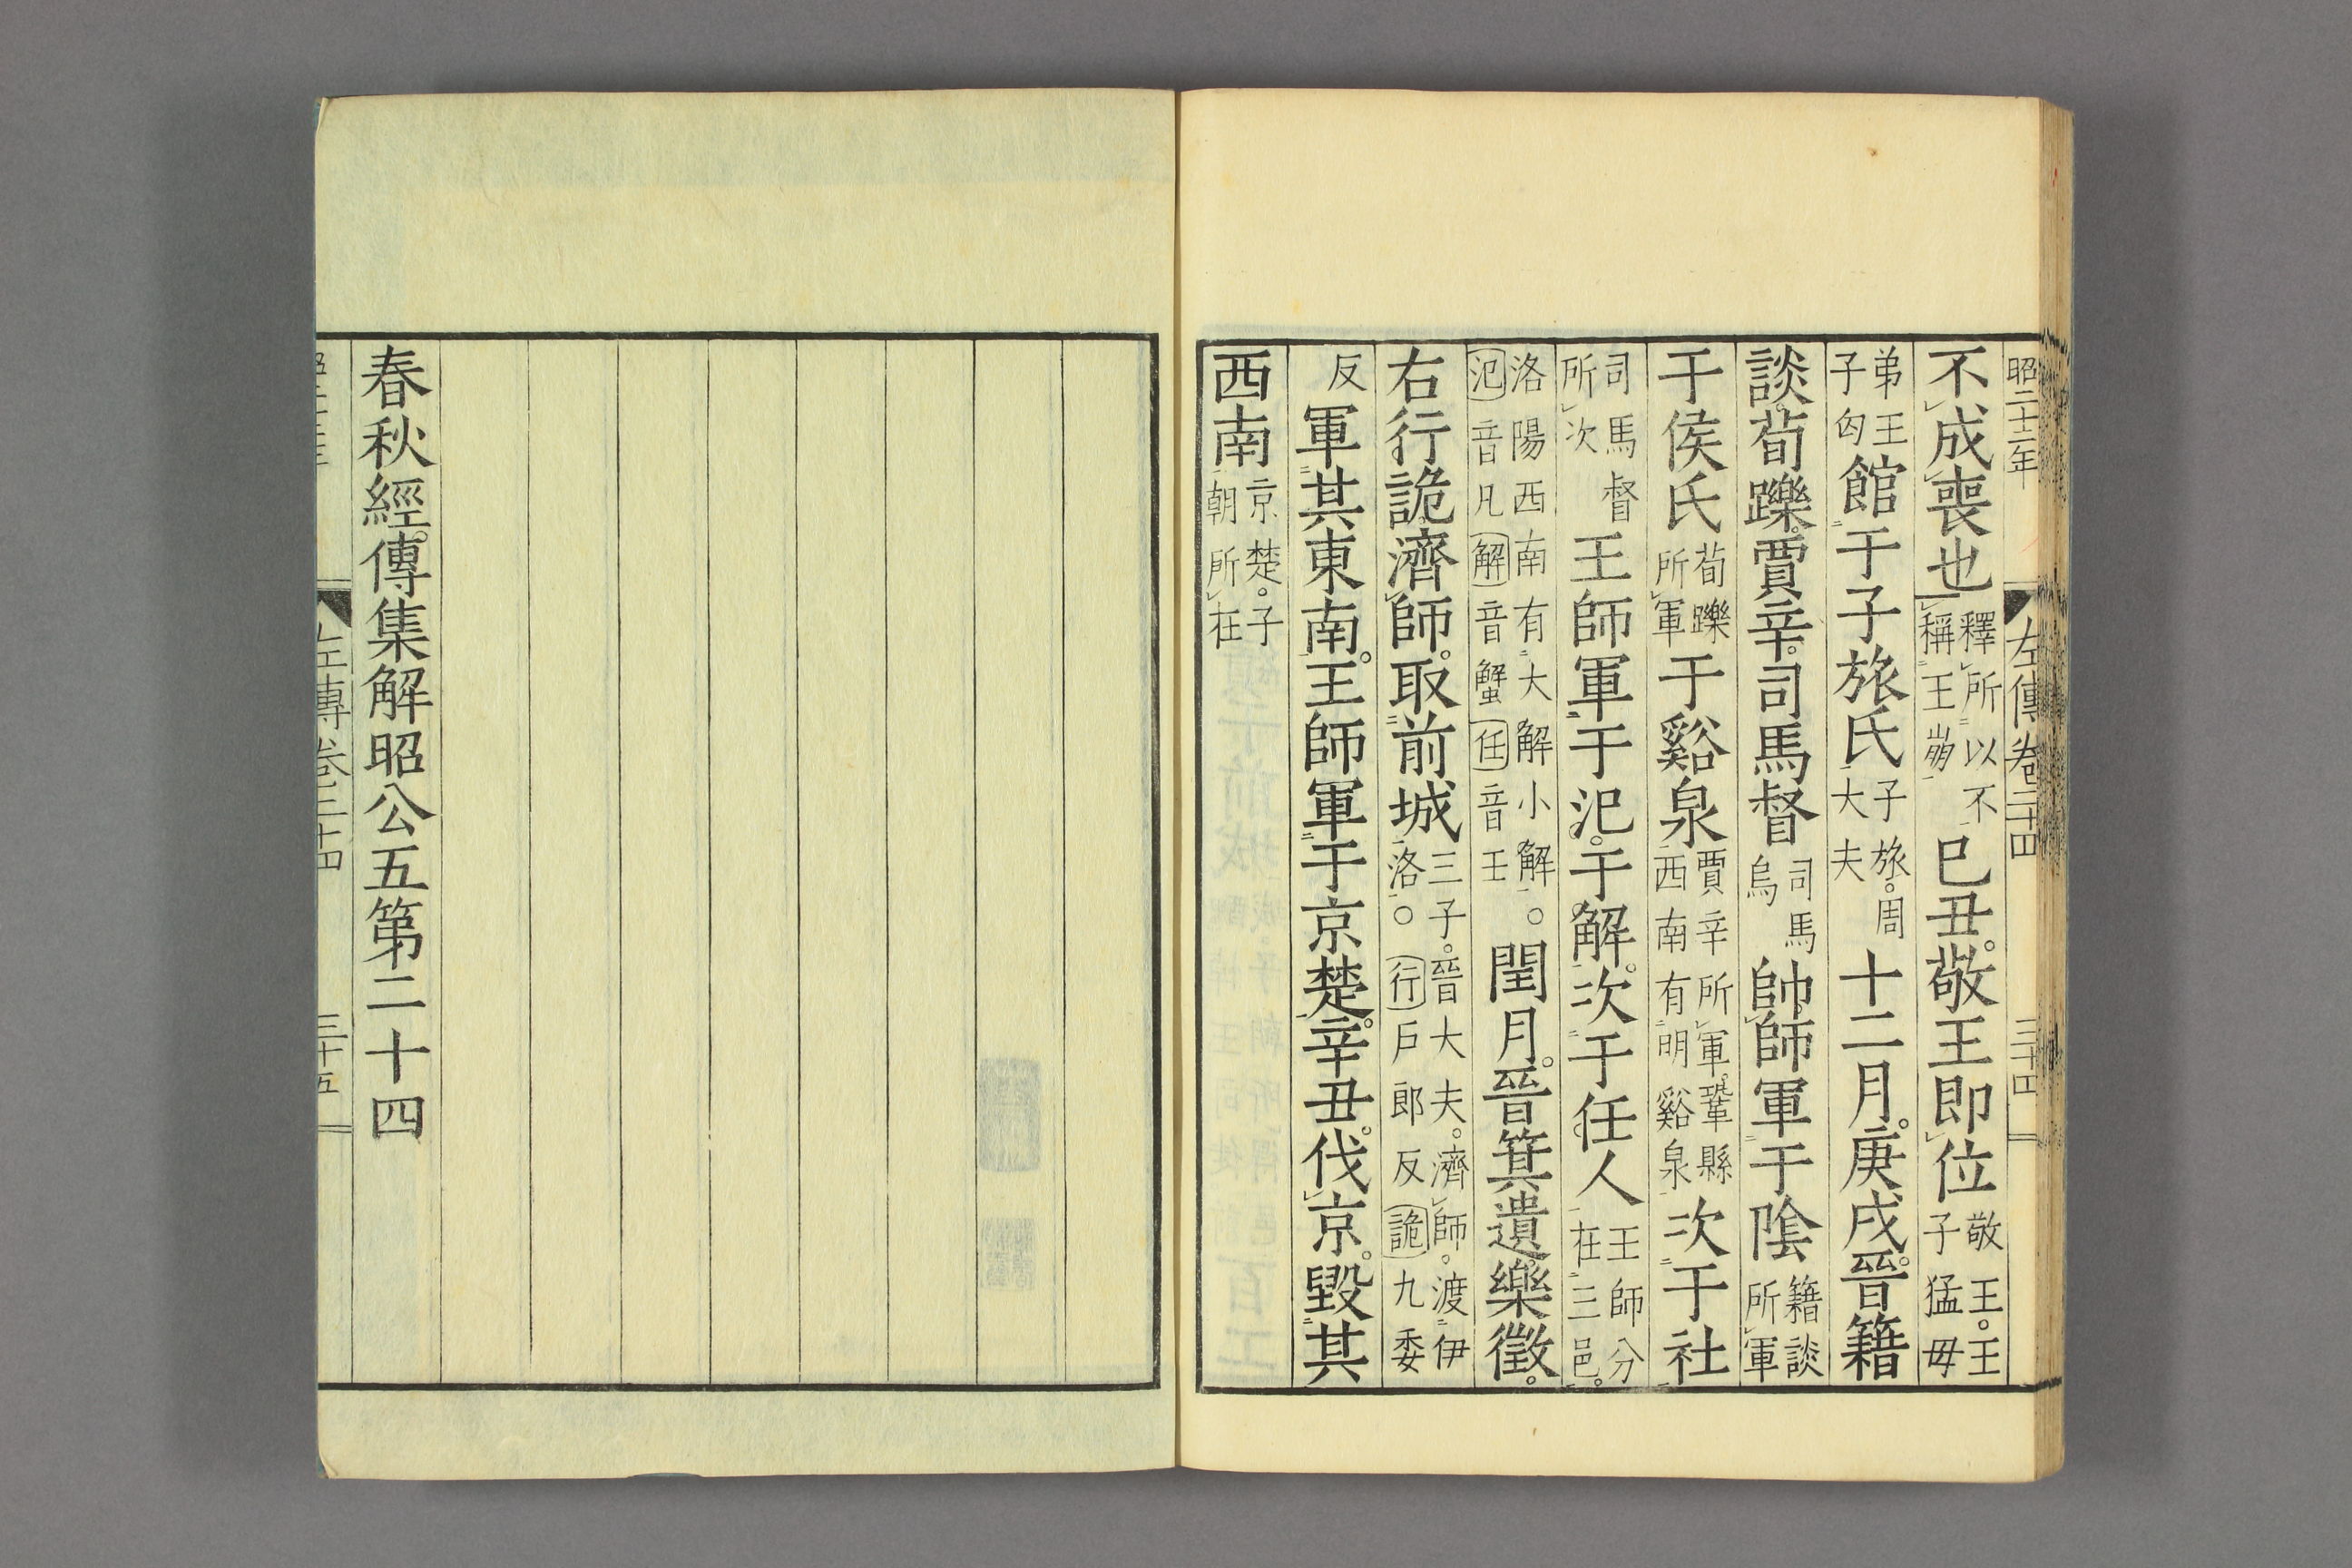 昭二十二年 左傳卷二十四 三十四
不成喪也釋所以不稱王崩巳丑。敬王即位敬王。王子猛母
弟王子匄館于子旅氏子旅。周大夫十二月。庚戌。晉籍
談。荀躒。賈辛。司馬督司馬烏帥師軍于陰籍談所軍
于侯氏荀躒所軍于谿泉賈辛所軍。鞏縣西南有明谿泉次于社
司馬督所次王師軍于氾。于解。次于任人王師分在三邑。
洛陽西南有大解小解。氾音凡解音蟹任音壬閏月。晉箕遺。樂徵。
右行詭。濟師。取前城三子。晉大夫。濟師。渡伊洛。○行戶郎反詭九委
反軍其東南。王師軍于京楚。辛丑。伐京。毀其
西南京楚。子朝所在
春秋經。傳集解昭公五第二十四
左傳卷二十四 三十五